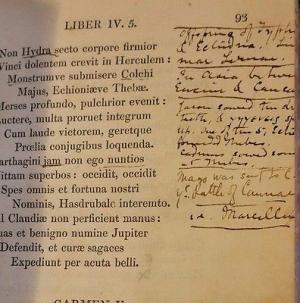 LIBER IV. 5. 93
Non Hydra secto corpore firmior
Vinci dolentem crevit in Herculem:
Monstrumve submisere Colchi
Majus, Echioniæve Thebæ.
Merses profundo, pulchrior evenit:
uctere, multa proruet integrum
Cum laude victorem, geretque
Prœlia conjugibus loquenda.
arthagini jam non ego nuntios
ittam superbos: occidit, occidit
Spes omnis et fortuna nostri
Nominis, Hasdrubale interemto.
il Claudiæ non perficient manus:
uas et benigno numine Jupiter
Defendit, et curæ sagaces
Expediunt per acuta belli.
offspring of
& Echidna. In
mar Lernae.
In Asia, betw
Euxine & Cauca
Jason sowed the dr
teeth, & warriors sp
up. One of the 5, Ech
founded Thebes.
Cadmus sowed som
Mago was sent to C
battle of Cannae
i.e. Marcellu
CARMEN V.